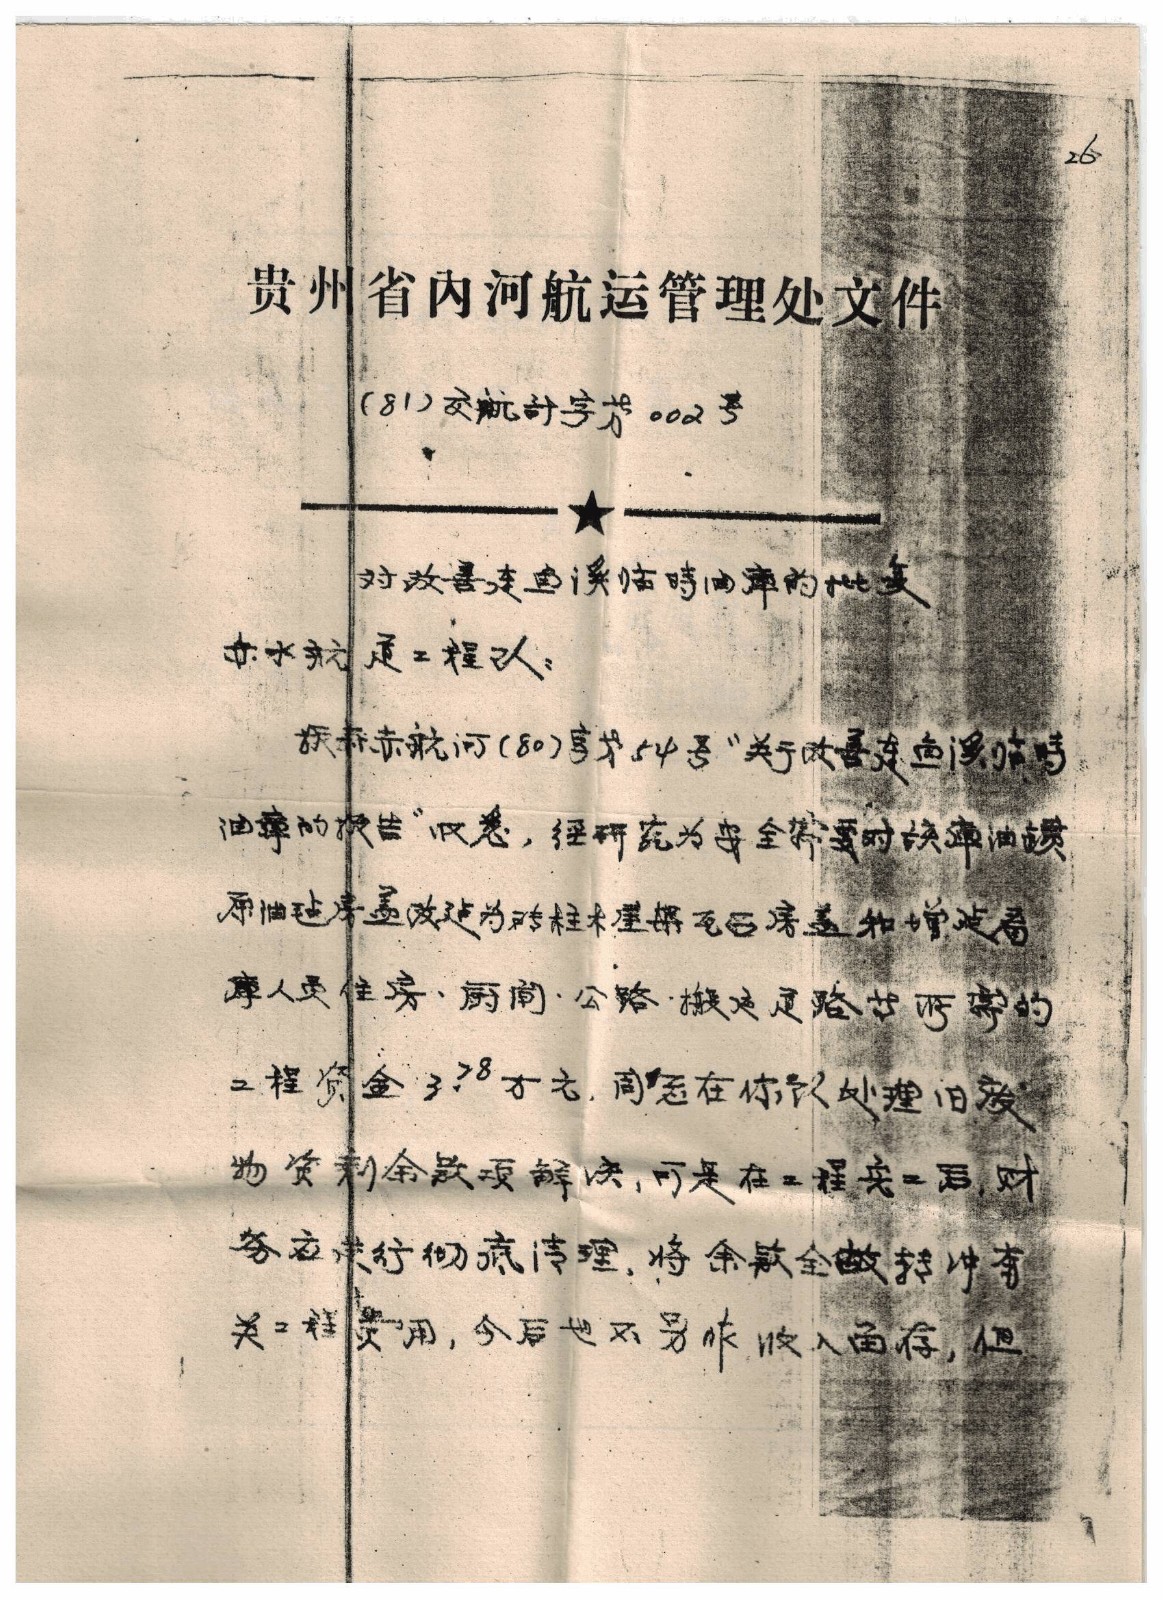 26
贵州省内河航运管理处文件
(81)交航计字第002号
对改善连鱼溪临時油庫的批复
赤水航道工程队:
报来赤航河(80)字第54号"关于改善连鱼溪临時
油庫的报告"收悉,经研究为安全需要对该庫油罐
原油毡房盖改建为砖柱木屋架瓦石房盖和增建看
庫人员住房·厨间·公路·搬运道路等所需的
工程资金3.78万元,同意在你队处理旧废
物资剩余款项解决,可是在工程完工后,财
务应进行彻底清理,将余款全部转冲有
关工程费用,今后也不另作收入面存,但